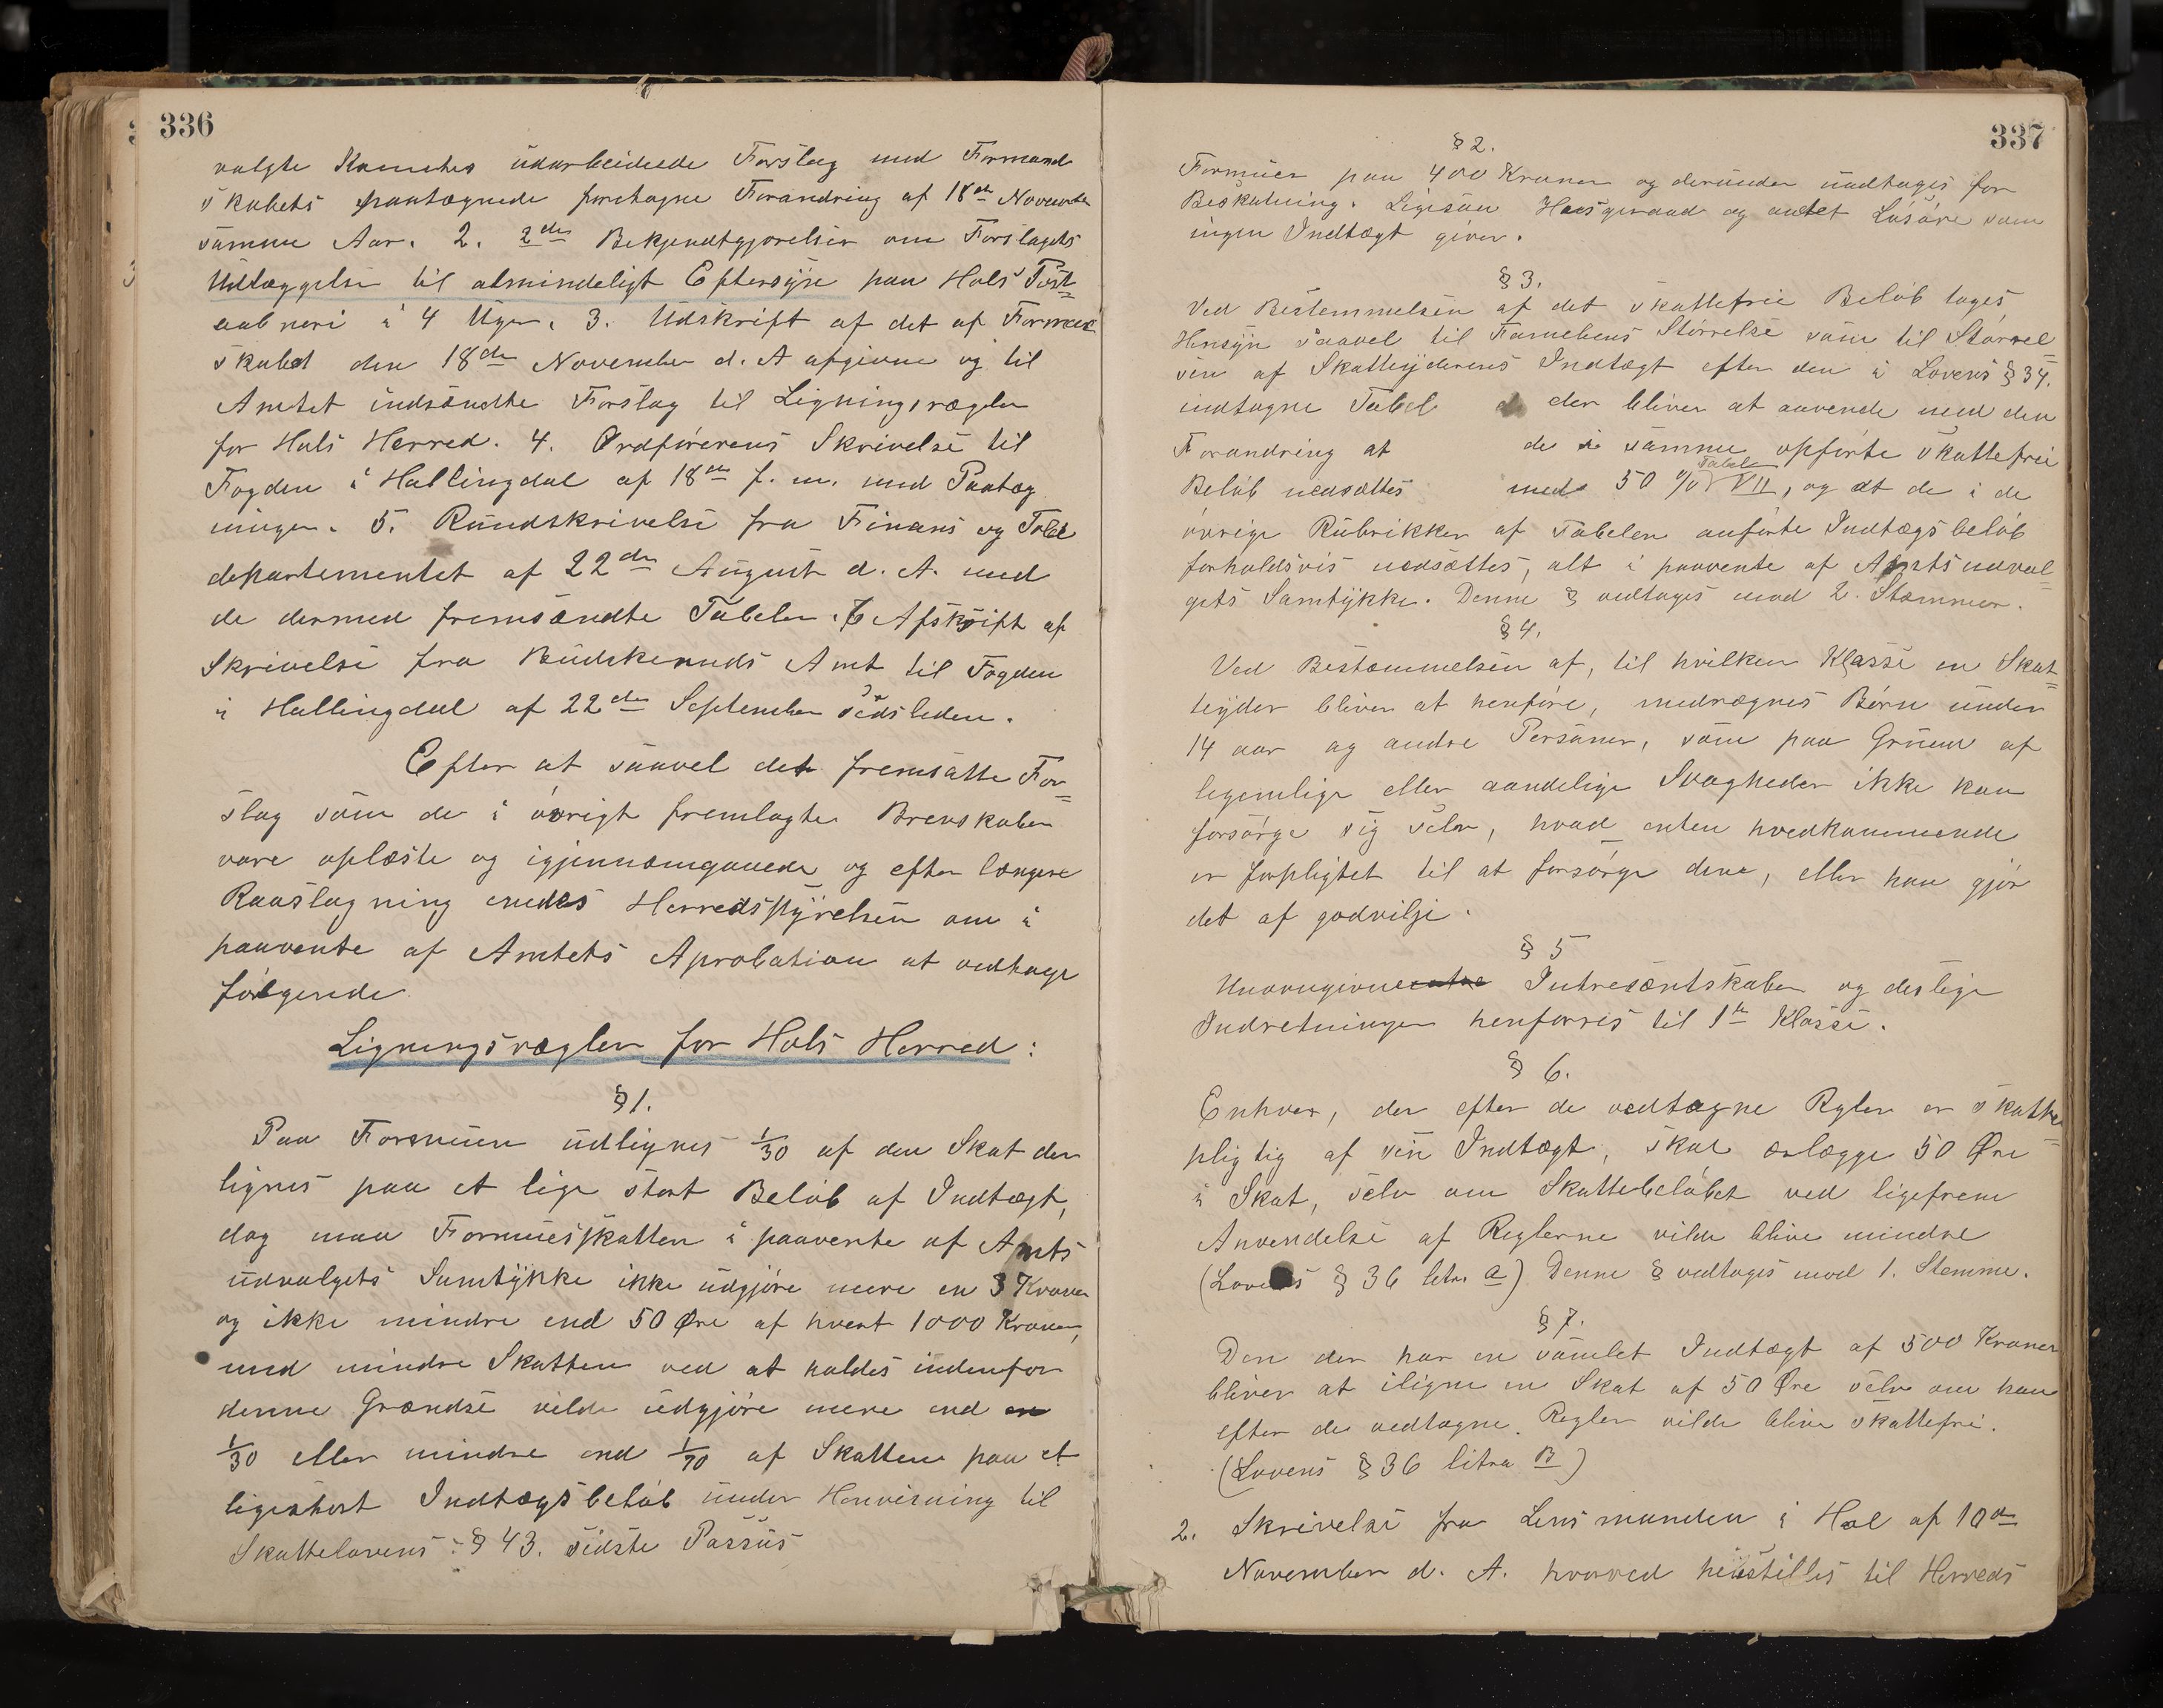 336
valgte Komites udarbeidede Forslag med Formand
skabets paategnede foretagne Forandring af 18de November
samme Aar. 2. 2de Bekjendtgjørelser om Forslagets
Udlæggelse til almindeligt Eftersyn paa Hols Post=
aabneri i 4 Uger. 3. Udskrift af det af Formand
skabet den 18de November d. A afgivne og til
Amtet indsendte Forslag til Ligningsrægler
for Hols Herred. 4. Ordførerens Skrivelse til
Fogden i Hallingdal af 18de f. m. med Paateg
ninger. 5. Rundskrivelse fra Finans og Told
departementet af 22de August d. A. med
de dermed fremsendte Tabeler. 6 Afskrift af
Skrivelse fra Budskeruds Amt til Fogden
i Hallingdal af 22de September sidstleden.
Efter at saavel det fremsatte For=
slag som de i øvrigt fremlagte Brevskaber
vare oplæste og igjennemgaaede og efter længere
Raaslagning enedes Herredsstyrelsen om i
paavente af Amtets Aprobation at vedtage
følgende
Ligningsrægler for Hols Herred:
§ 1.
Paa Formuen udlignes 1/30 af den Skat der
lignes paa et lige stort Beløb af Indtægt,
dog maa Formuesskatten i paavente af Amts
udvalgets Samtykke ikke udgjøre mere en 3 Kroner
og ikke mindre end 50 Øre af hvert 1000 Kroner,
med mindre Skatten ved at holdes indenfor
denne Grændse vilde udgjøre mere end en
1/30 eller mindre end 1/70 af Skatten paa et
ligestort Indtægsbeløb under Henvisning til
Skattelovens § 43. sidste Passus
337
§ 2.
Formuer paa 400 Kroner og derunder undtages for
Beskatning. Ligesaa Husgeraad og andet Løsøre som
ingen Indtægt giver.
§ 3.
Ved Bestemmelsen af det skattefrie Beløb tages
Hensyn saavel til Familiens Størrelse som til Størrel
sen af Skatteyderens Indtægt efter den i Lovens § 34.
indtagne Tabel der bliver at anvende med den
Forandring at de i samme opførte skattefrie
Beløb nedsættes med 50 % Tabel VII, og at de i de
øvrige Rubrikker af Tabelen anførte Indtægsbeløb
forholdsvis nedsættes, alt i paavente af Amtsudval=
gets Samtykke. Denne § vedtages mod 2. Stemmer.
§ 4.
Ved Bestemmelsen af, til hvilken Klasse en Skat=
teyder bliver at henføre, medregnes Børn under
14 aar og andre Personer, som paa Grund af
legemlige eller aandelige Svagheder ikke kan
forsørge sig selv, hvad enten hvedkommende
er forpligtet til at forsørge dem, eller han gjør
det af godvilje.
§ 5
Intresentskaber og deslige
Indretninger henførres til 1te Klasse.
§ 6.
Enhver, der efter de vedtagne Regler er skatte=
pligtig af sin Indtægt, skal erlægge 50 Øre
i Skat, selv om Skattebeløbet ved ligefrem
Anvendelse af Reglerne vilde blive mindre
(Lovens § 36 litr. a) Denne § vedtages mod 1. Stemme.
§ 7.
Den der har en samlet Indtægt af 500 Kroner
bliver at iligne en Skat af 50 Øre selv om han
efter de vedtagne Regler vilde blive skattefri.
(Lovens § 36 litra B)
2. Skrivelse fra Lensmanden i Hol af 10de
November d. A. hvorved henstilles til Herreds